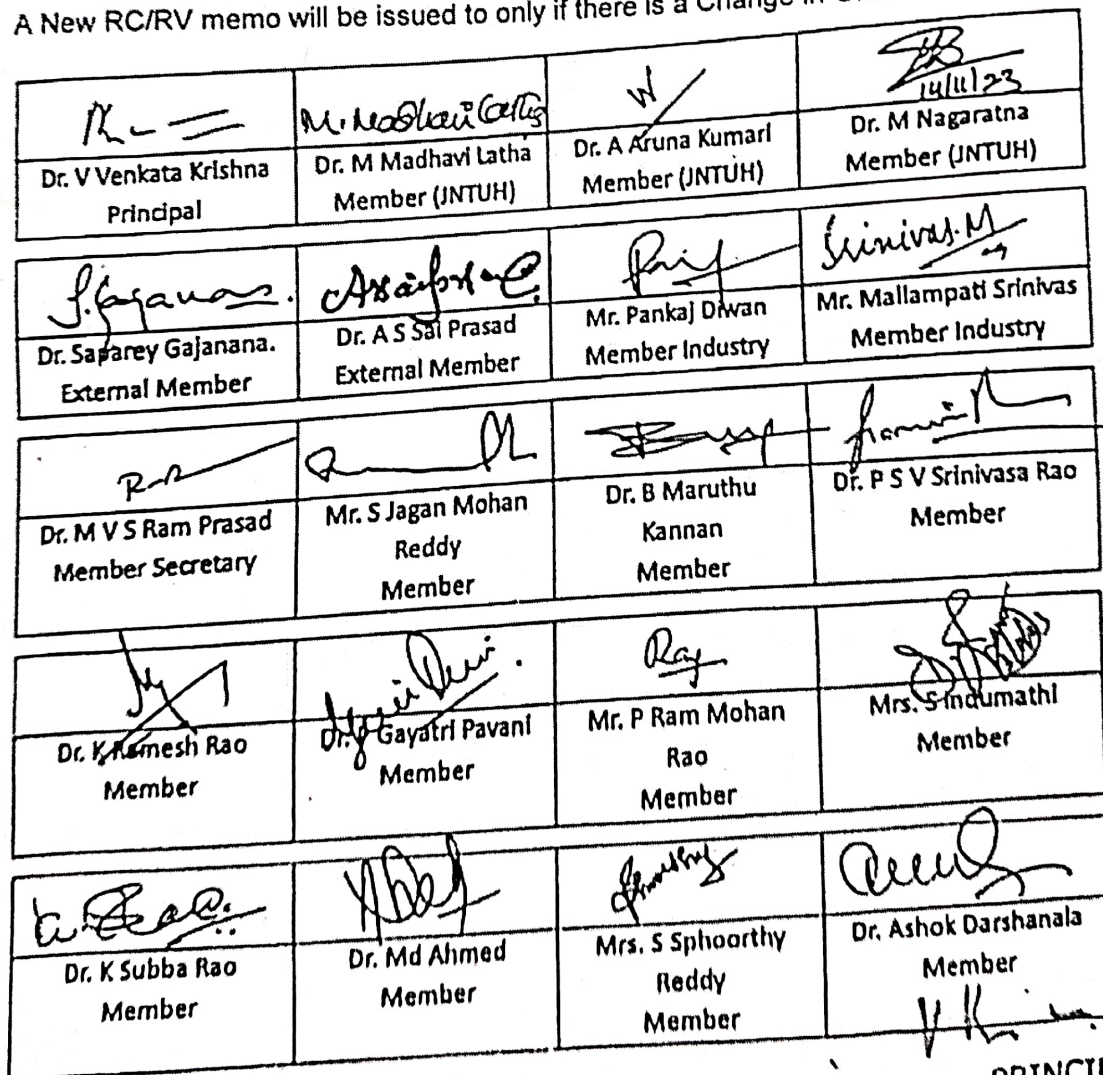 A New RC/RV memo will be issued to only if there is a Change in
14/11/23
Dr. V Venkata Krishna
Principal
M. Madhavi Latha
Dr. M Madhavi Latha
Member (JNTUH)
Dr. A Aruna Kumari
Member (JNTUH)
Dr. M Nagaratna
Member (JNTUH)
S. Gajanana.
Dr. Saparey Gajanana.
External Member
Dr. A S Sai Prasad
External Member
Mr. Pankaj Diwan
Member Industry
Srinivas.M
Mr. Mallampati Srinivas
Member Industry
Dr. M V S Ram Prasad
Member Secretary
Mr. S Jagan Mohan
Reddy
Member
Dr. B Maruthu
Kannan
Member
Dr. P S V Srinivasa Rao
Member
Dr. K Ramesh Rao
Member
Gayatri Pavani
Member
Mr. P Ram Mohan
Rao
Member
Mrs. S Indumathi
Member
Dr. K Subba Rao
Member
Dr. Md Ahmed
Member
Mrs. S Sphoorthy
Reddy
Member
Dr. Ashok Darshanala
Member